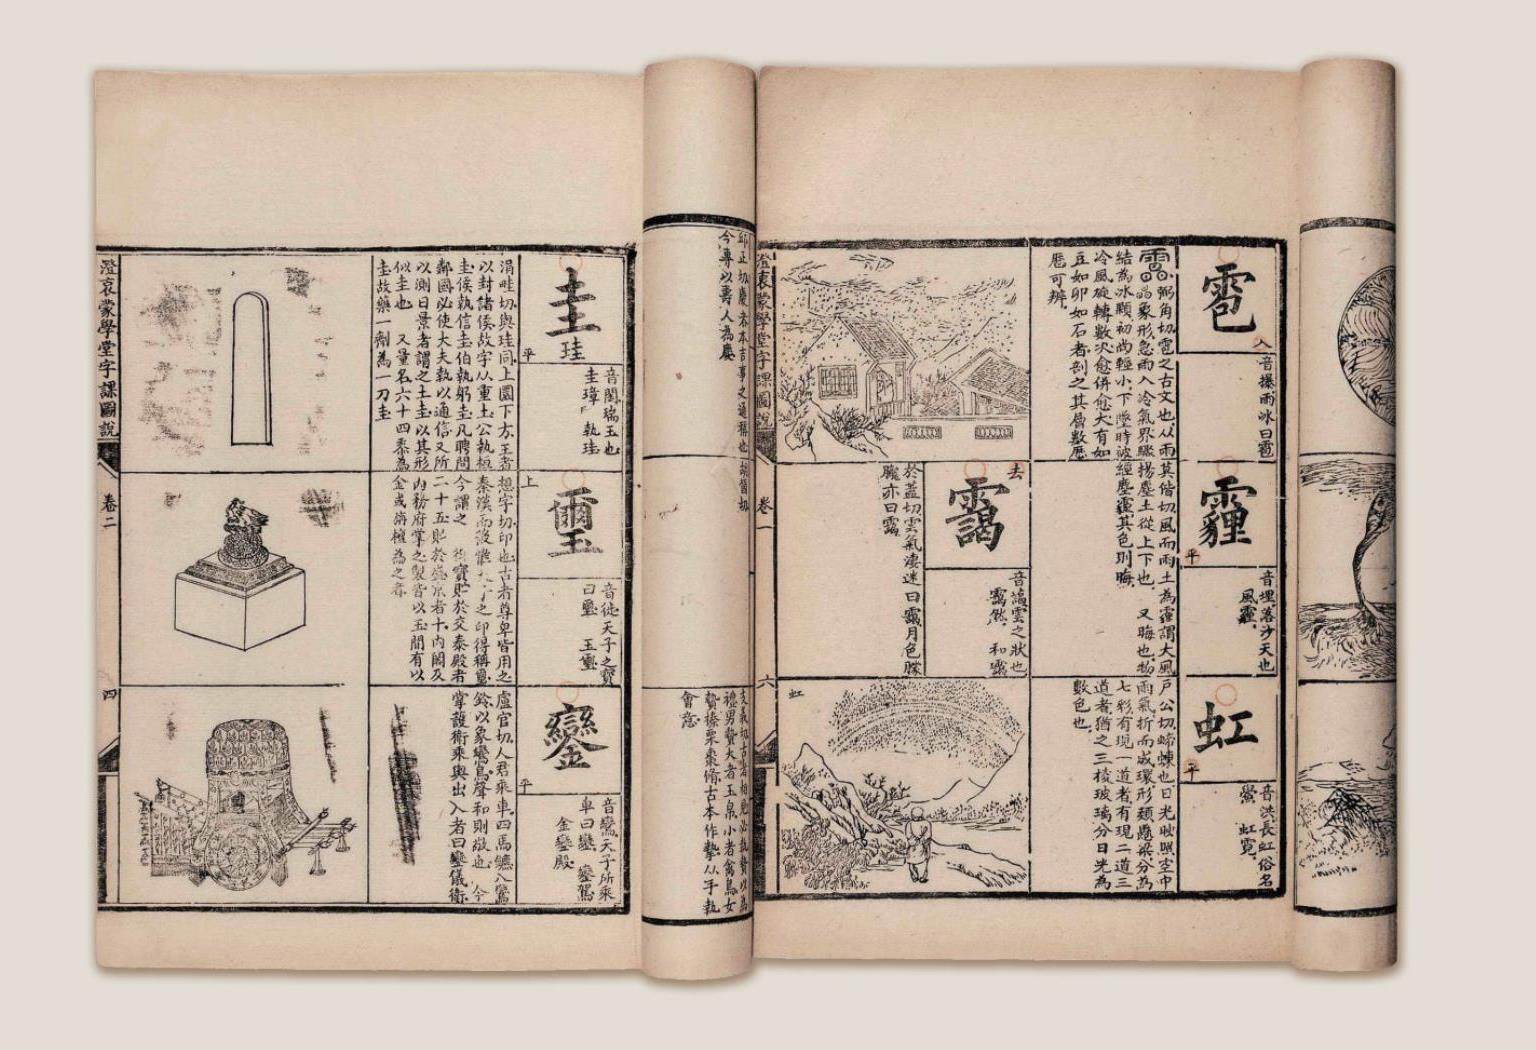 雹
入
音撲雨冰曰雹
弼角切雹之古文也从雨
晶象形急雨入冷氣界驟
結為冰顆初尚輕小下墜時被
冷風旋轉數次愈併愈大有如
豆如卵如石者剖之其層數歷
歷可辨
霾
平
音埋落沙天也
風霾
莫偕切風而雨土為霾謂大風
揚塵土從上下也 又晦也物
經塵霾其色則晦
靄
去
音藹雲之狀也
靄然 和靄
於蓋切雲氣淒迷曰靄月色朦
朧亦曰靄
虹
平
音洪長虹俗名
鱟 虹霓
戶公切螮蝀也日光映照空中
雨氣折而成環形頗懸梁分為
七彩有現一道者有現二道三
道者猶之三稜玻璃分日光為
數色也
虹
澄衷蒙學堂字課圖說
卷一
六
邱正切慶者本吉事之通稱也
今專以壽人為慶
胡誓切
支義切古者相見必執贄以為
禮男贄大者玉帛小者禽鳥女
贄榛栗棗脩古本作摯从手執
會意
圭
珪
平
音閨瑞玉也
圭璋 執珪
涓畦切與珪同上圜下方王者
以封諸侯故字从重土公執桓
圭侯執信圭伯執躬圭凡聘問
鄰國必使大夫執以通信又所
以測日景者謂之土圭以其形
似圭也 又量名六十四黍為
圭故藥一劑為一刀圭
璽
上
音徙天子之寶
曰璽 玉璽
想字切印也古者尊卑皆用之
秦漢而後惟天子之印得稱璽
今謂之 寶貯於交泰殿者
二十五貯於盛京者十內閣及
內務府掌之製皆以玉間有以
金或旃檀為之者
鑾
平
音鸞天子所乘
車曰鑾 鑾駕
金鑾殿
盧官切人君乘車四馬鑣八鸞
鈴以象鸞鳥聲和則敬也 今
掌護衛乘輿出入者曰鑾儀衛
澄衷蒙學堂字課圖說
卷二
四